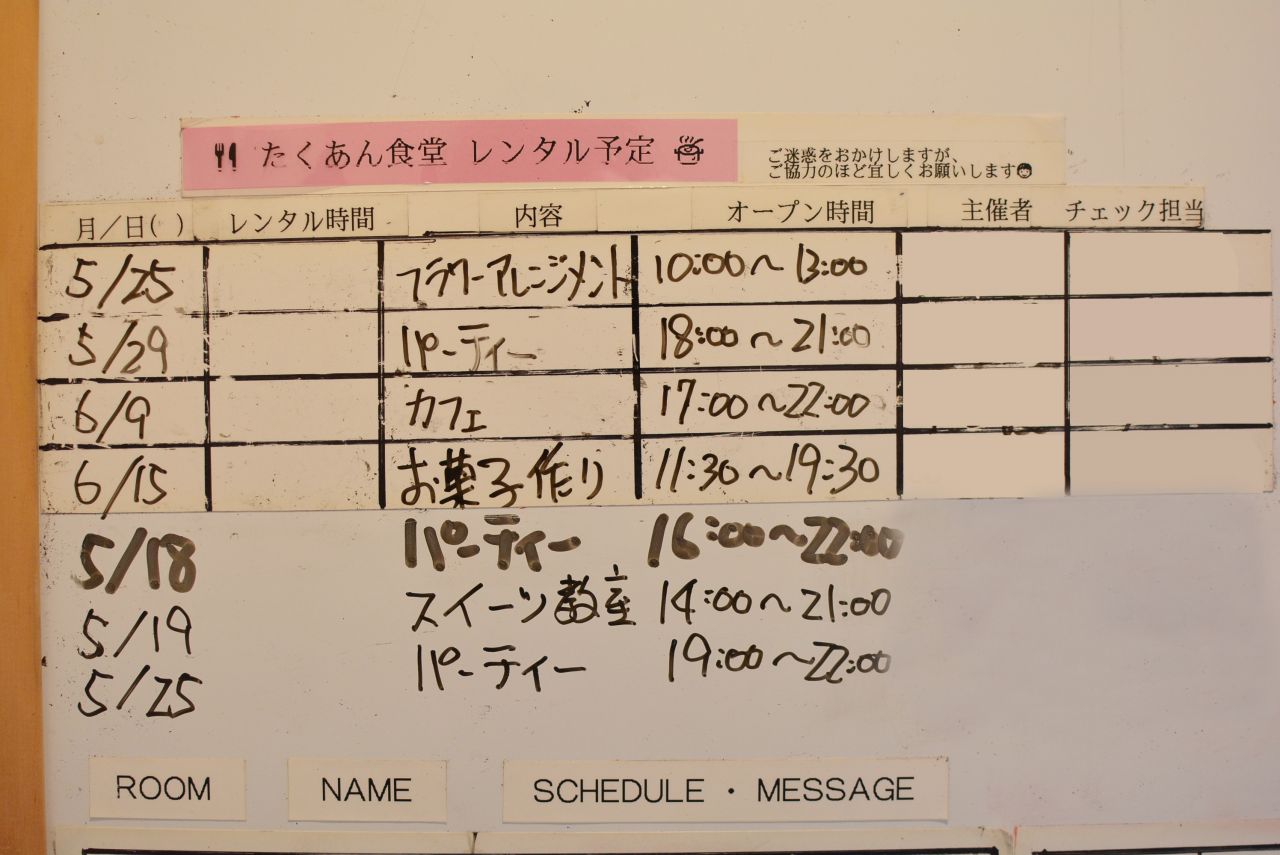 たくあん食堂 レンタル予定
ご迷惑をおかけしますが、
ご協力のほど宜しくお願いします
月/日( ) レンタル時間 内容 オープン時間 主催者 チェック担当
5/25 フラワーアレンジメント 10:00〜13:00
5/29 パーティー 18:00〜21:00
6/9 カフェ 17:00〜22:00
6/15 お菓子作り 11:30〜19:30
5/18 パーティー 16:00〜22:00
5/19 スイーツ教室 14:00〜21:00
5/25 パーティー 19:00〜22:00
ROOM NAME SCHEDULE・MESSAGE